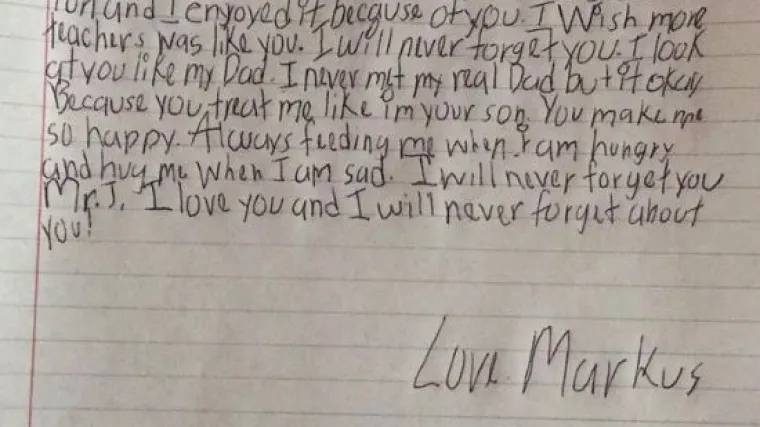 fun and I enyoyed it because of you. I Wish more
teachers was like you. I will never forget you. I look
at you like my Dad. I never met my real Dad but it okay
Because you treat me like i'm your son. You make me
so happy. Always feeding me when I am hungry
and hug me when I am sad. I will never forget you
Mr. J. I love you and I will never forget about
you!
Love Markus